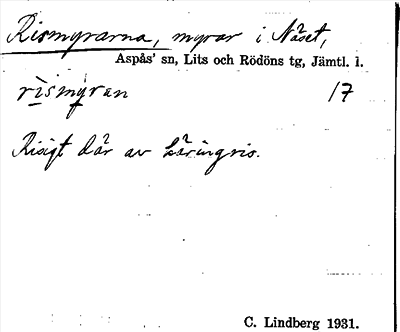 Rismyrarna, myrar i Näset,
Aspås' sn, Lits och Rödöns tg, Jämtl. l.
rismyran 17
Risigt där av käringris.
C. Lindberg 1931.